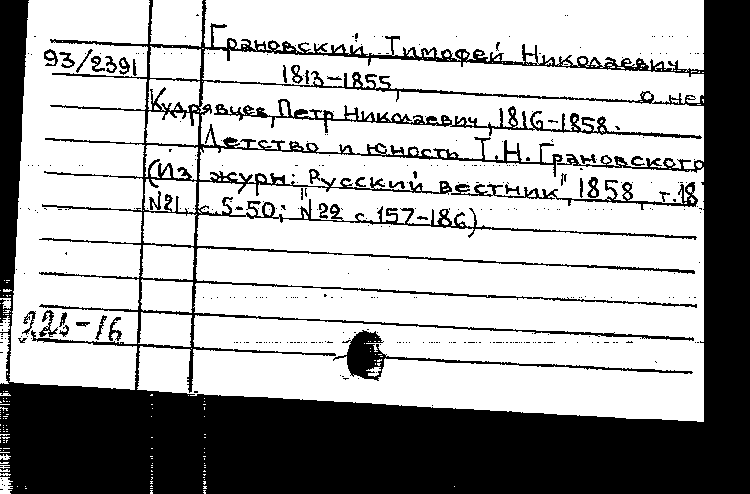 Грановский, Тимофей Николаевич,
93/2391
1813-1855,
о нем
Кудрявцев, Петр Николаевич, 1816-1858.
Детство и юность Т.Н. Грановского
(Из журн: Русский вестник", 1858, т.18
N21, с.5-50; N22 с.157-186).